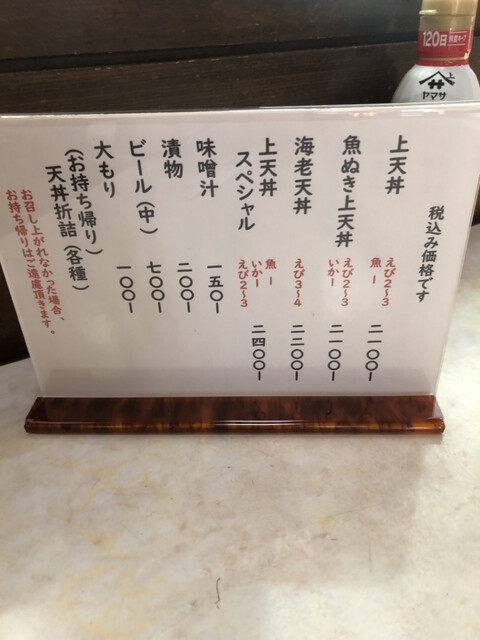 税込み価格です
上天丼 えび2~3 魚ー 二一〇〇ー
魚ぬき上天丼 えび2~3 いかー 二一〇〇ー
海老天丼 えび3~4 二二〇〇ー
上天丼スペシャル 魚ー いかー えび2~3 二四〇〇ー
味噌汁 一五〇ー
漬物 二〇〇ー
ビール(中) 七〇〇ー
大もり 一〇〇ー
(お持ち帰り)
天丼折詰(各種)
お召し上がれなかった場合、
お持ち帰りはご遠慮頂きます。
120日
ヤマサ